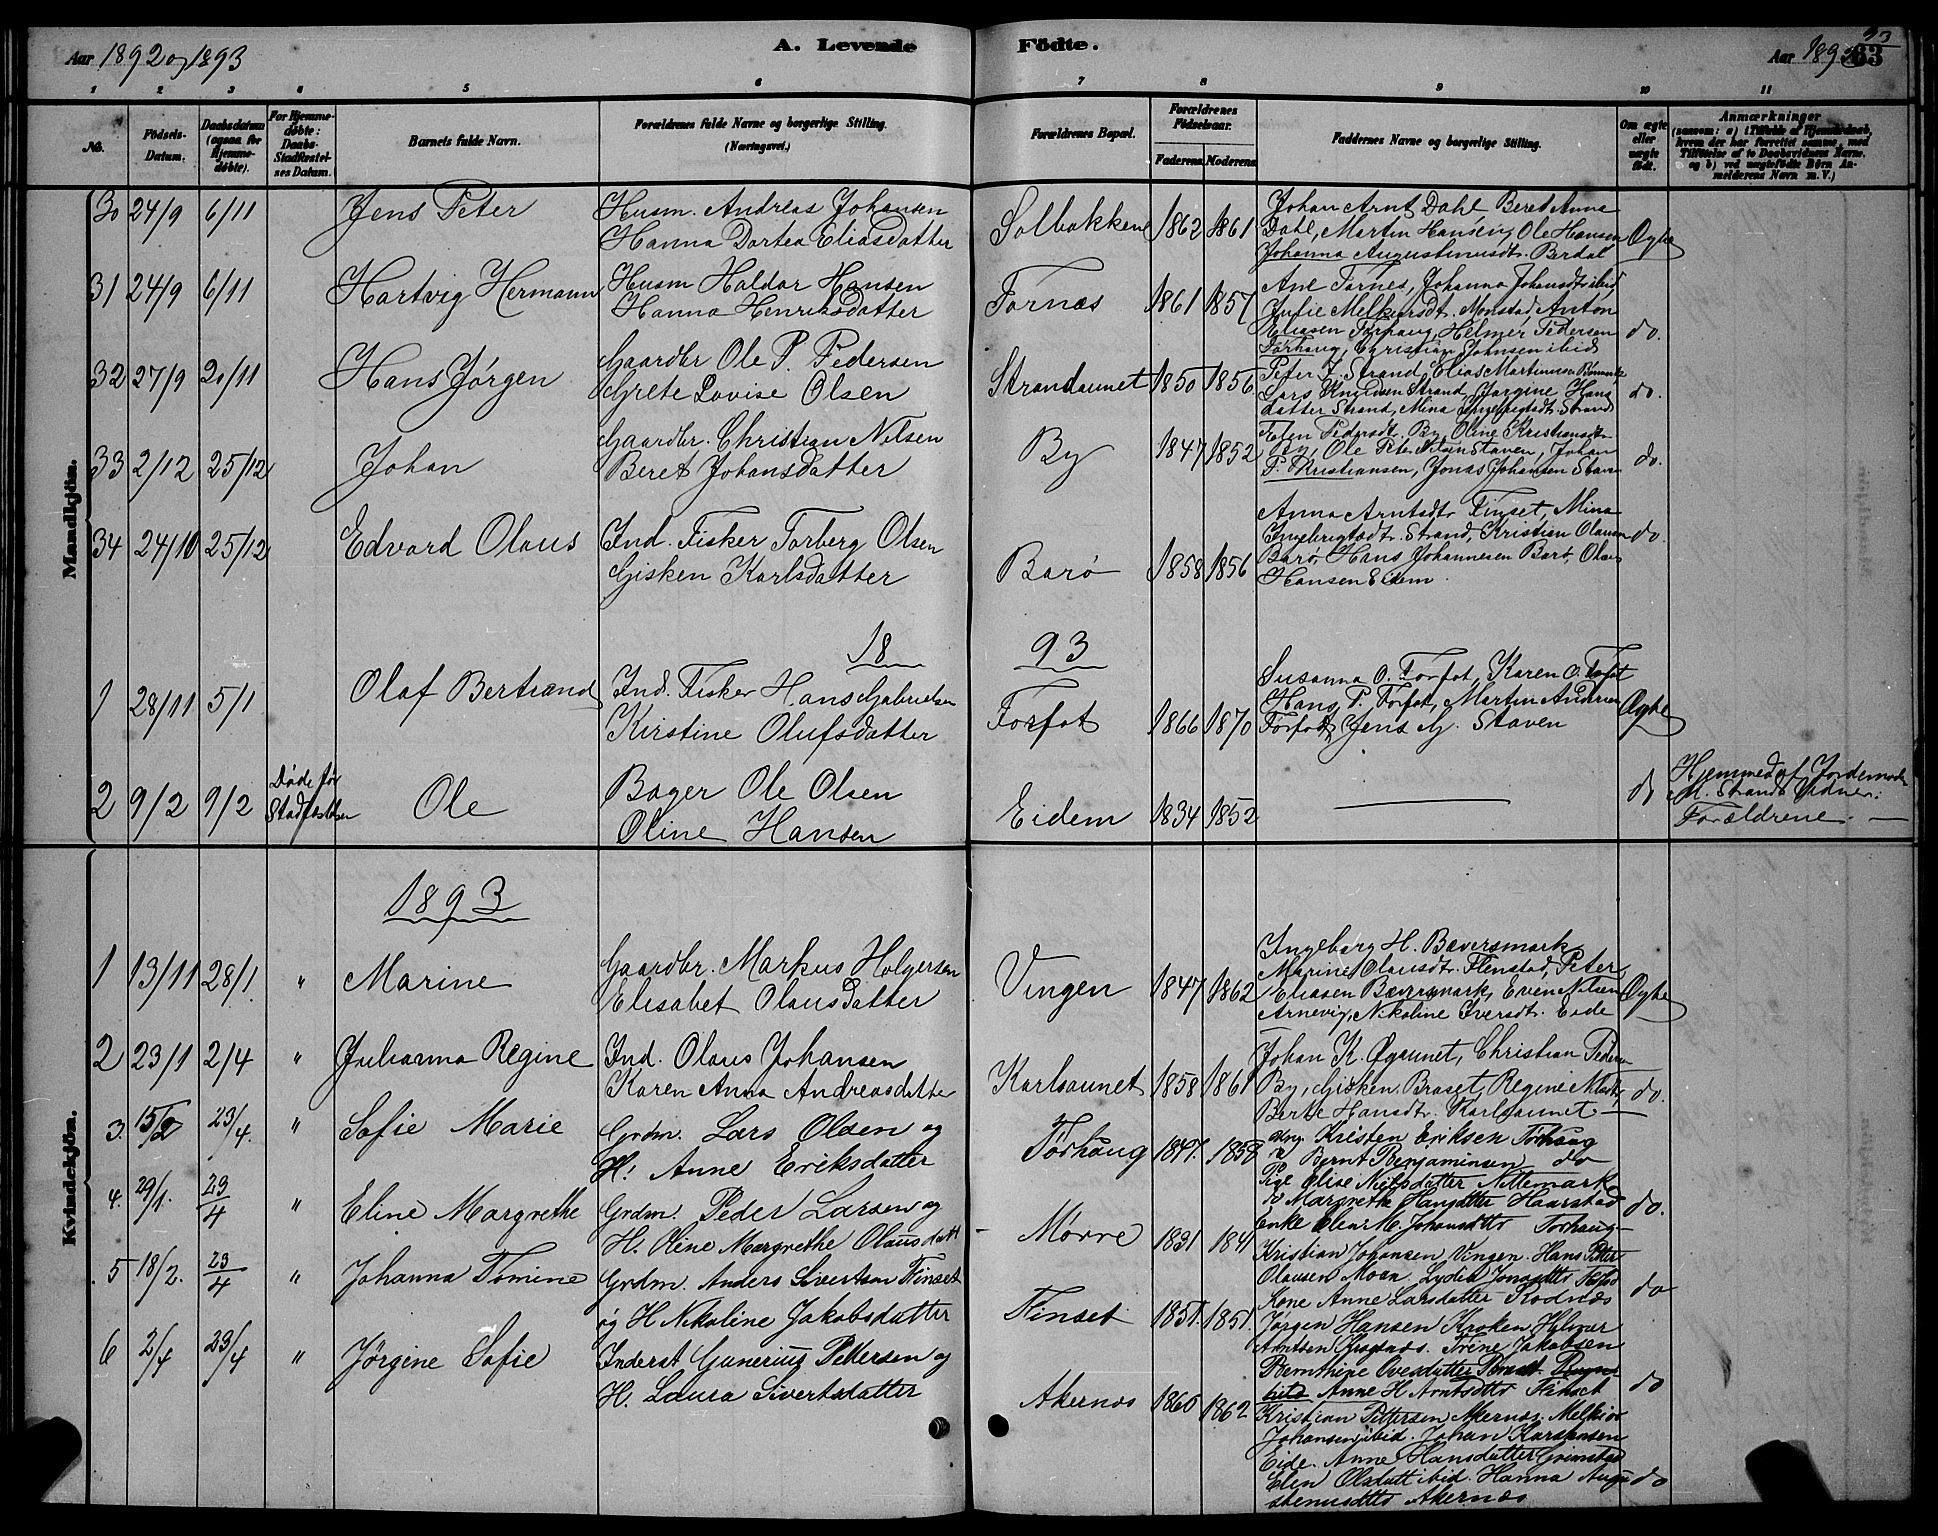 Aar 1892 og 1893
A. Levende Födte.
Aar 1893
63
1 2 3 4 5 6 7 8 9 10 11
No.
Födsels-Datum.
Daabsdatum (ogsaa for Hjemme-döbte).
For Hjemme-döbte: Daabs-Stadfæstel-ses Datum.
Barnets fulde Navn.
Forældrenes fulde Navne og borgerlige Stilling. (Næringsvei.)
Forældrenes Bopæl.
Forældrenes Födselsaar.
Faderens. Moderens.
Faddernes Navne og borgerlige Stilling.
Om ægte eller uægte født.
Anmærkninger
(saasom: a) i Tilfælde af Hjemmedaab, hvem der har forrettet samme, med Tilföielse af to Daabsvidners Navne, og b) ved uægtefödte Börn An-melderens Navn m. V.)
Mandkjön.
30 24/9 6/11 Jens Peter
Husm. Andreas Johansen
Hanna Dortea Eliasdatter
Solbakken 1862 1861
Johan Arnt Dahl Beret Anna
Dahl, Martin Hansen, Ole Hansen
Johanna Augustinusdt. Berdal
Ægte
31 24/9 6/11 Hartvig Hermann
Husm Haldor Hansen
Hanna Henriksdatter
Fornæs 1861 1857
Ane Fornes, Johanna Johansdt ibid
Julie Melkiorsdt. Monstad, Anton
Eliasen Førhaug, Helmer Pedersen
Førhaug, Christian Johnsen ibid
do.
32 27/9 20/11 Hans Jørgen
Gaardbr Ole P. Pedersen
Grete Lovise Olsen
Strandaunet 1850 1856
Peter J. Strand, Elias Martinusen
Lars Knudsen Strand, Jørgine Hans
datter Strand, Mina Ingebrigtsdt. Strand
do.
33 2/12 25/12 Johan
Gaardbr. Christian Nilsen
Beret Johansdatter
By 1847 1852
Elen Pedersdt. By, Oline Kristiansdtr
By, Ole Peter Nilsen Staven, Johan
P. Kristiansen, Jonas Johansen Staven
do.
34 24/10 25/12 Edvard Olaus
Ind. Fisker Torberg Olsen
Gisken Karlsdatter
Barø 1858 1856
Anna Arntsdtr Finset, Mina
Ingebrigtsdtr. Strand, Kristian Olausen
Barø, Hans Johannesen Barø, Olaus
Hansen Eidem.
do.
18 93
1 28/11 5/1 Olaf Bertrand
Ind. Fisker Hans Gabrielsen
Kirstine Olufsdatter
Forfot 1866 1870
Susanna O. Forfot, Karen O. Forfot
Hans P. Forfot, Martin Andersen
Forfot, Jens G. Staven
Ægte
2 9/2 9/2 Døde før Stadfæstelsen
Ole
Bager Ole Olsen
Oline Hansen
Eidem 1834 1852
do
Hjemmed. af Jordemoder
M. Strand Vidner:
Forældrene.
Kvindekjön.
1893
1 13/11 28/1 " Marine
Gaardbr. Markus Holgersen
Elisabet Olausdatter
Vingen 1847 1862
Ingeborg H. Bæversmark,
Marine Olausdtr. Flenstad, Peter
Eliasen Bæversmark, Even Nilsen
Arnevig, Nikoline Iversdt. Eide
Ægte
2 23/1 2/4 " Julianna Regine
Ind. Olaus Johansen
Karen Anna Andreasdatter
Karlsaunet 1858 1861
Johan K. Øyaunet, Christian Pedersen
By, Gisken Braset, Regine
Berte Hansdt. Karlsaunet
do.
3. 15/2 23/4. " Sofie Marie
Grdm. Lars Olsen og
H. Anne Eriksdatter
Førhaug 1847. 1858
Kristen Eriksen Førhaug
Bernt Benjaminsen do
Pige Elise Nielsdatter Nittemark
Margrethe Hansdatter Haarstad
Enke Elen M. Johansdtr Førhaug
do.
4. 29/1. 23/4 " Eline Margrethe
Grdm. Peder Larsen og
H. Oline Margrethe Olausdatt
Mørre 1831 1841
Kristian Johansen Vingen. Hans Peter
Olausen Moan. Lydia Jonasdtr
Kone Anne Larsdatter Rodnæs
do
5 18/2. 23/4 " Johanna Tomine
Grdm. Anders Sivertsen Finset
og H Nikoline Jakobsdatter
Finset 1851. 1851.
Jørgen Hansen Kroken Helmer
Arntsen Krogsnæs. Trine Jakobsen
Bernthine Ovesdatter
Anne H Arntsdtr Finset
do
6 2/4 23/4 " Jørgine Sofie
Inderst Gunerius Pettersen og
H. Laura Sivertsdatter
Akernæs 1860 1862
Kristian Pettersen Akernæs. Melkior
Johansen ibid. Johan Karstensen
Eide. Anne Hansdatter Grimstad
Elen Olsdatt ibid. Hanna Augu
stinusdtr Akernæs
do